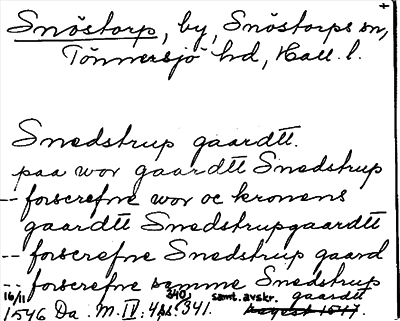 Snöstorp, by, Snöstorps sn,
Tönnersjö hd, Hall. l.
Snedstrup gaardtt.
paa wor gaardtt Snedstrup
-- forscrefne wor oc kronens
gaardtt Snedstrupgaardtt
-- forscrefne Snedstrup gaard
-- forscrefne samme Snedstrup
gaardtt.
16/11 1546 Da: M. IV: 4, s. 340, 341. samt. avskr.